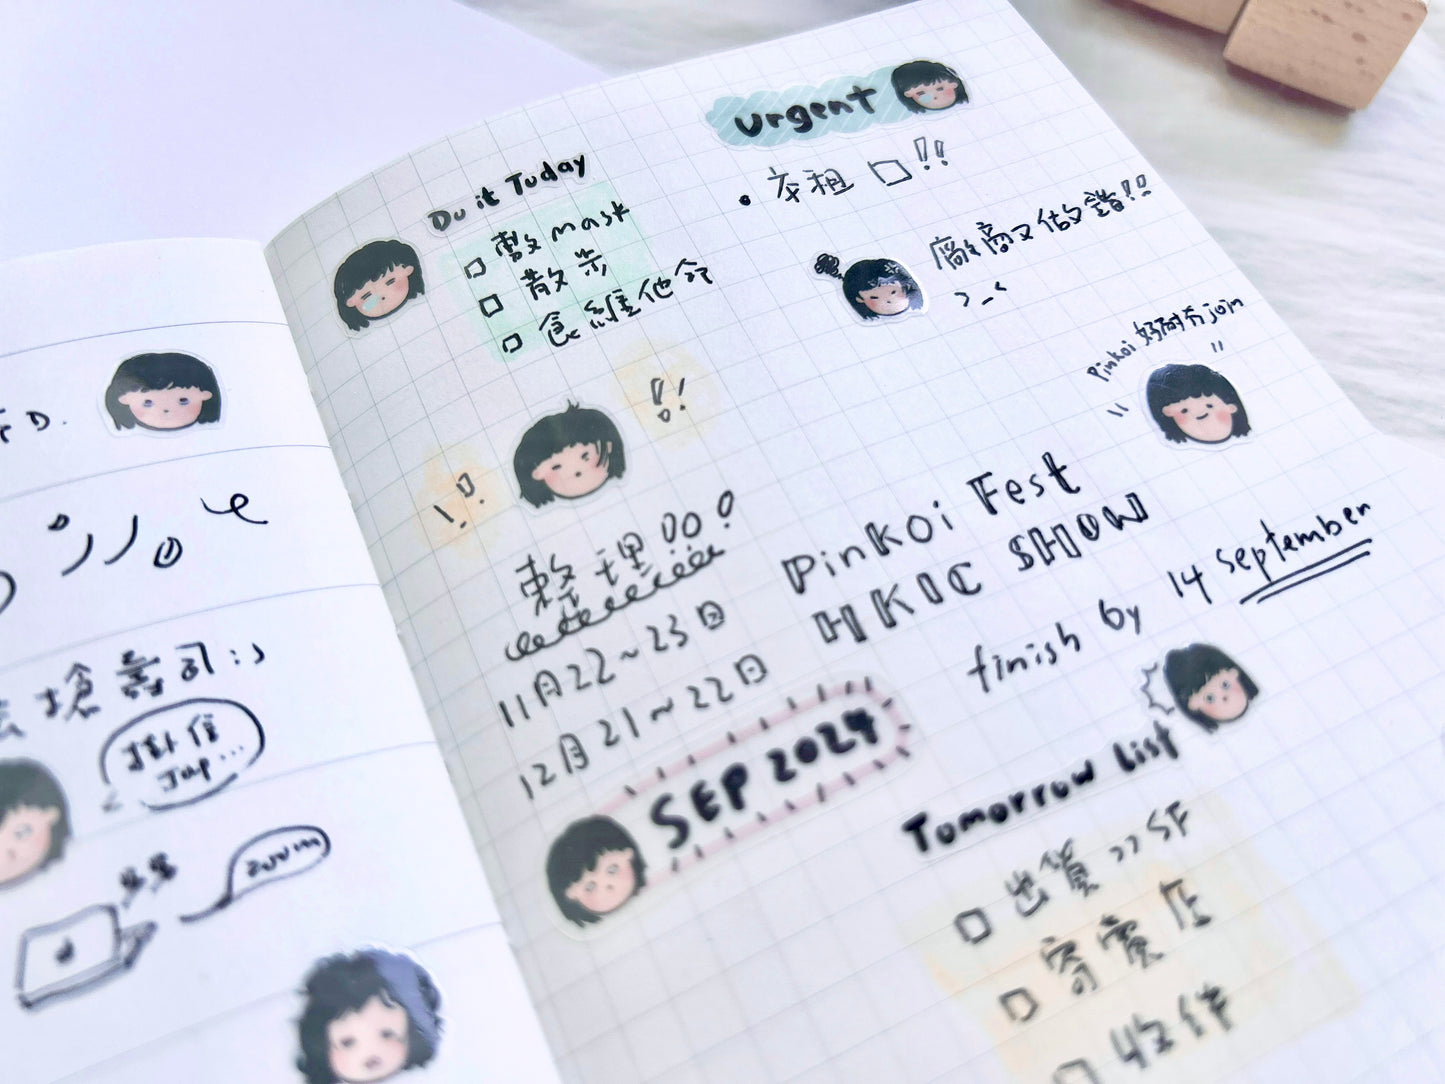 搶壽司:)
掛住
Jap...
zoom
Do it Today
敷mask
散步
食維他命
!!
!!
整理!!
11月22~23日
12月21~22日
SEP 2024
Urgent
• 交租 !!
廠商又做錯!!
>_<
Pinkoi 好耐冇join
Pinkoi Fest
HKIC SHOW
finish by 14 september
Tomorrow List
出貨>>SF
寄賣店
收件